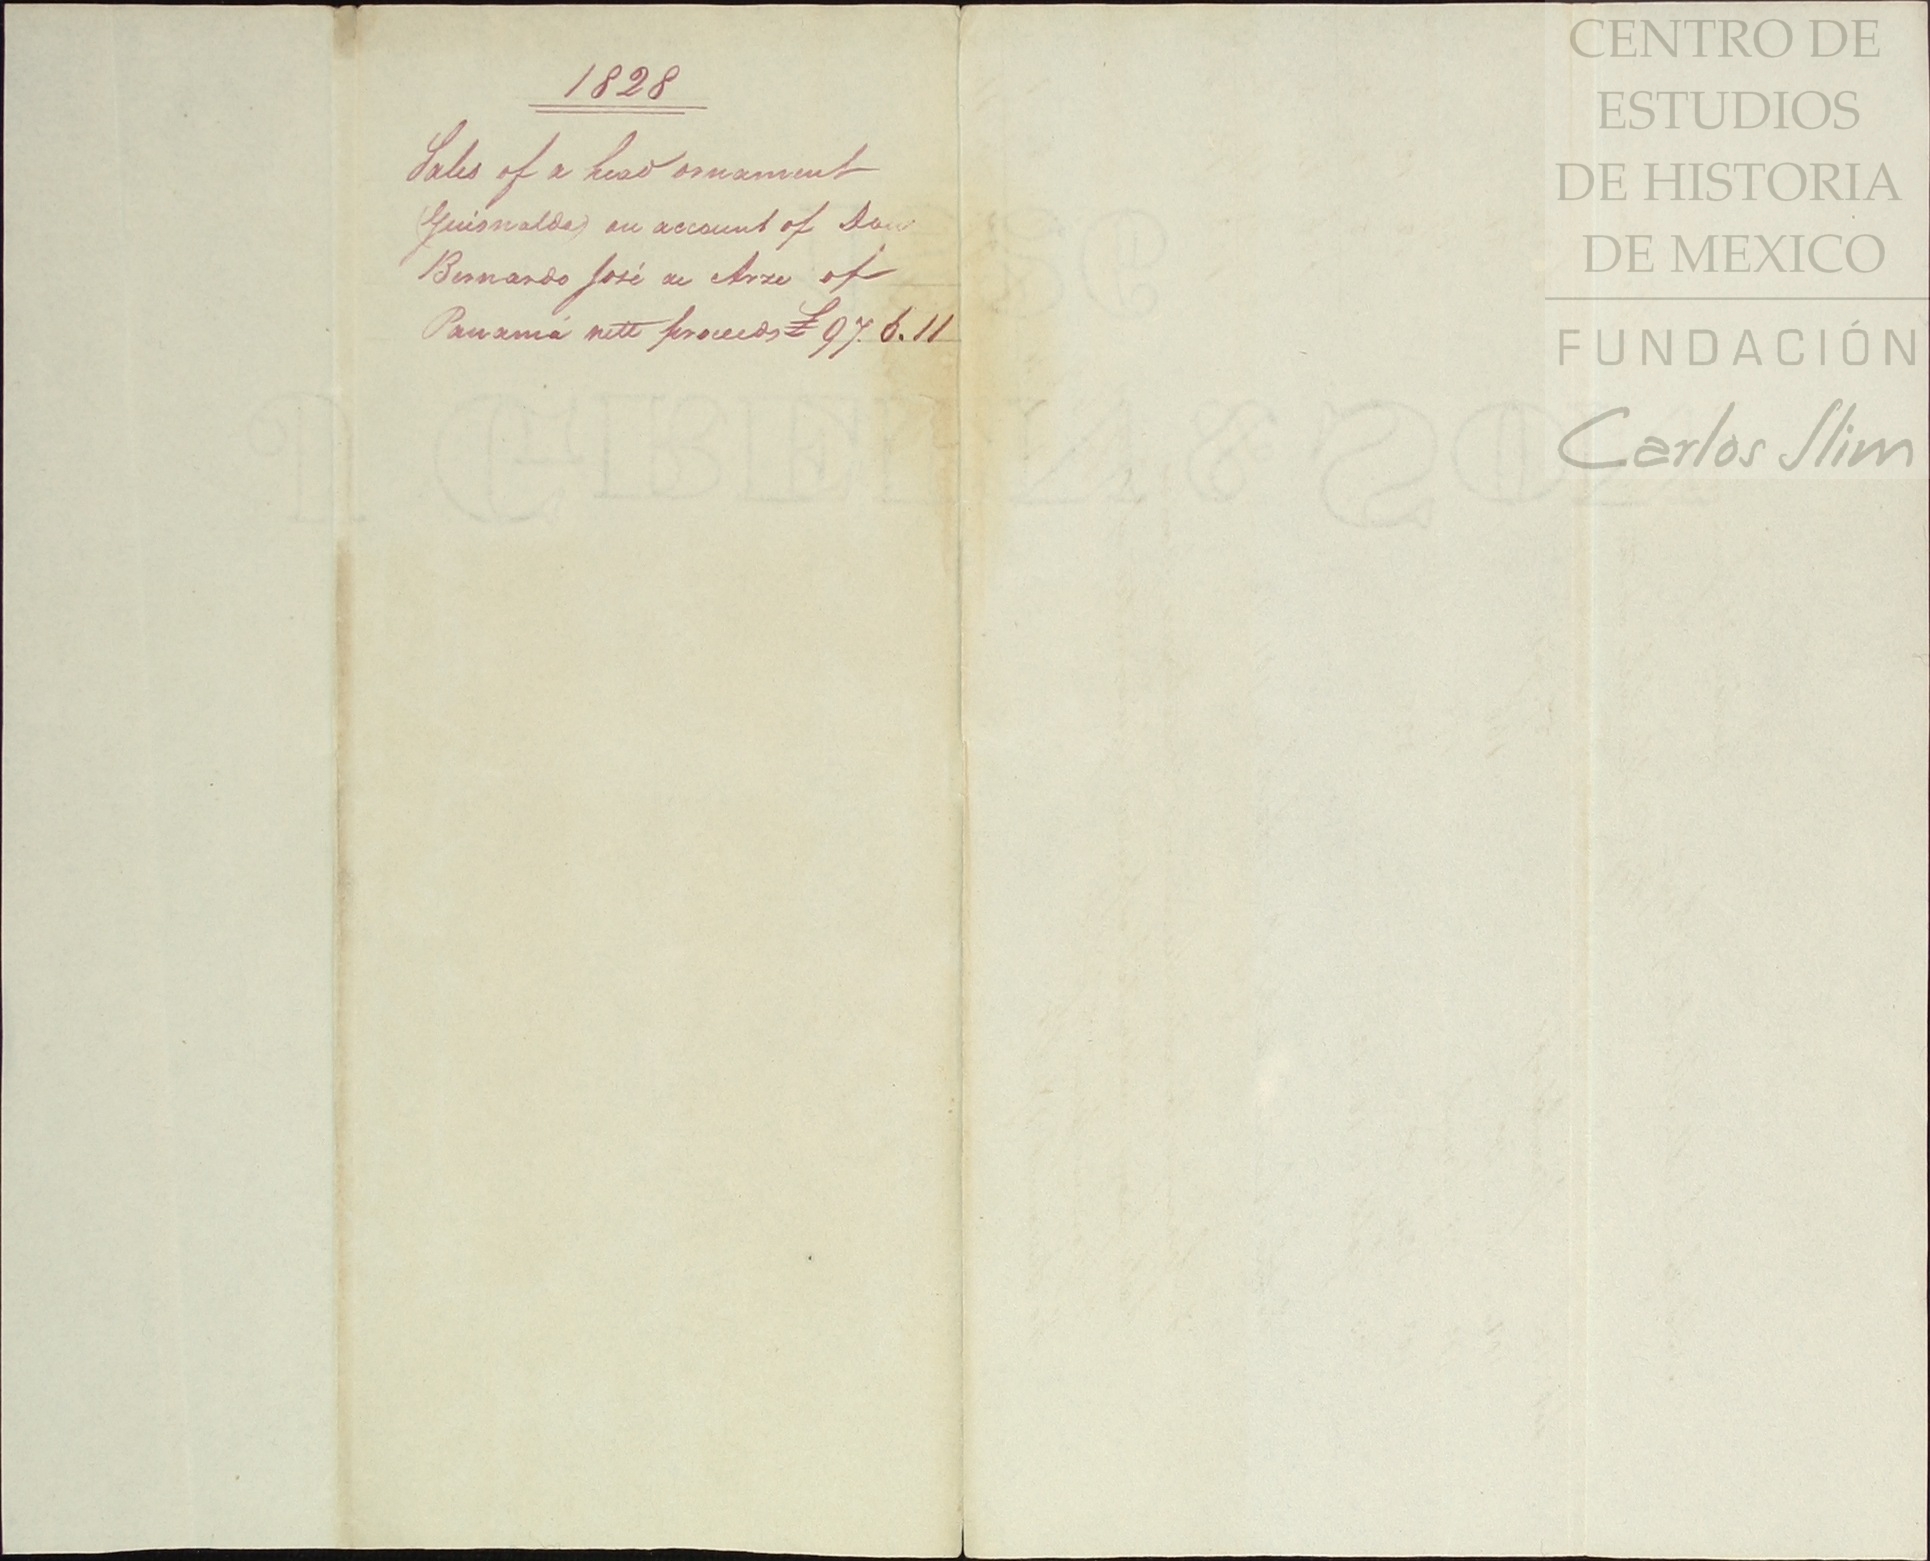 1828
Sales of a head ornament
(Guirnalda) on account of Don
Bernardo José de Arze of
Panamá nett proceeds £ 97. 6. 11
CENTRO DE
ESTUDIOS
DE HISTORIA
DE MEXICO
FUNDACIÓN
Carlos Slim